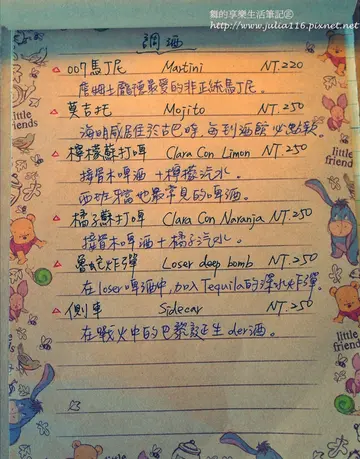 舞的享樂生活筆記
http://www.julia116.pixnet.net
調酒
007馬丁尼 Martini NT.220
詹姆士龐德最愛的非正統馬丁尼。
莫吉托 Mojito NT.250
海明威居住於古巴時,每到酒館必點款
檸檬蘇打啤 Clara Con Limon NT.250
接骨木啤酒+檸檬汽水。
西班牙當地最常見的啤酒。
橘子蘇打啤 Clara Con Naranja NT.250
接骨木啤酒+橘子汽水。
魯蛇炸彈 Loser deep bomb NT.250
在loser啤酒中,加入Tequila的深水炸彈。
側車 Sidecar NT.250
在戰火中的巴黎誕生der酒。
little friends
little friends
little friends